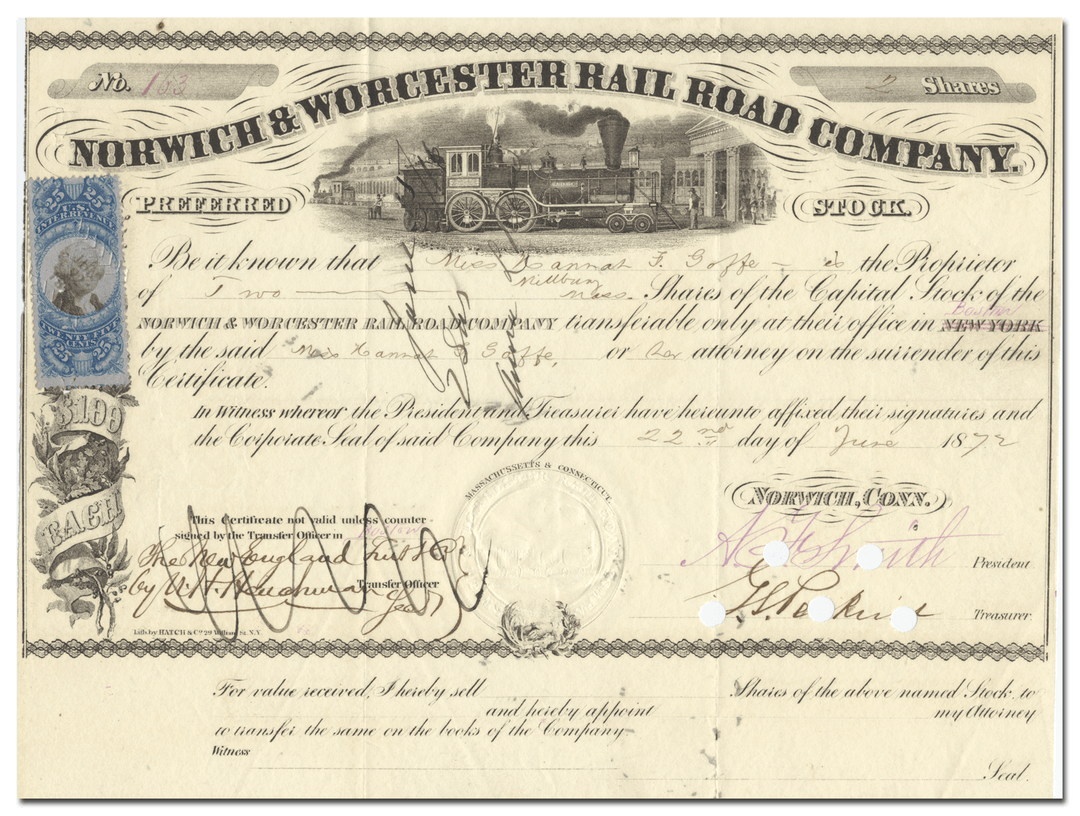 No. 163
2 Shares
NORWICH & WORCESTER RAIL ROAD COMPANY.
PREFERRED STOCK.
25 U.S. 25
INTER. REVENUE
TWENTY FIVE CENTS
Be it known that Miss Hannah F. Goffe is the Proprietor
Millbury
of Two Mass. Shares of the Capital Stock of the
Boston
NORWICH & WORCESTER RAIL ROAD COMPANY transferable only at their office in NEW YORK
by the said Miss Hannah F Goffe, or her attorney on the surrender of this
Certificate.
$100
EACH
In Witness whereof the President and Treasurer have hereunto affixed their signatures and
the Corporate Seal of said Company this 22nd day of June 1872
MASSACHUSSETTS & CONNECTICUT.
NORWICH, CONN.
This Certificate not valid unless counter-
signed by the Transfer Officer in Boston
The New England Trust Co.
by Transfer Officer
President
G. L. Perkins Treasurer.
Lith. by HATCH & Co. 29 William St. N.Y.
For value received, I hereby sell Shares of the above named Stock, to
and hereby appoint my Attorney
to transfer the same on the books of the Company.
Witness
Seal.